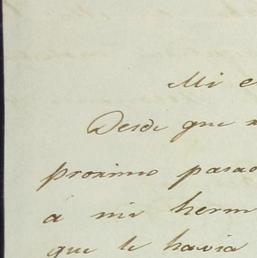 Mi
Desde que
proximo pasad
á mi herm
que le havia